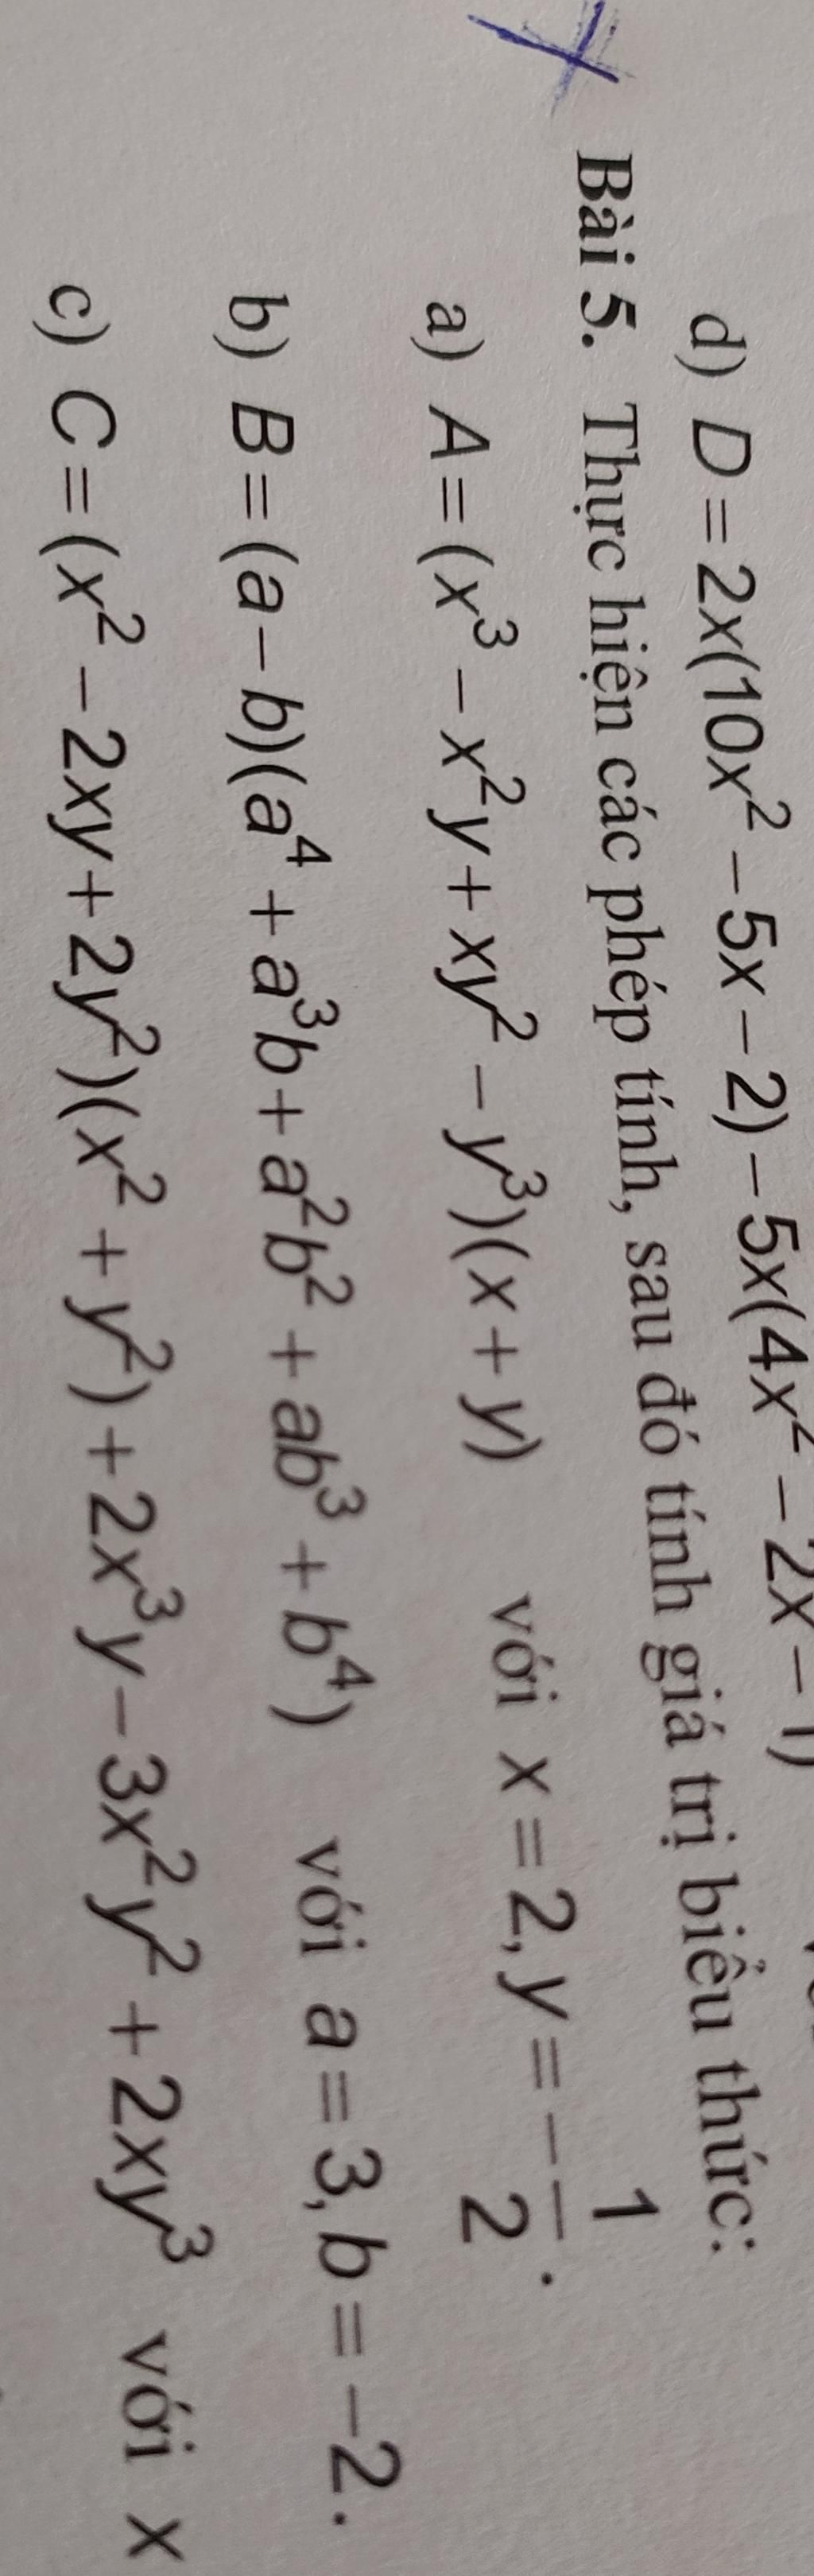 d) D = 2x(10x² – 5x – 2) – 5x(4x² – 2x – 1)
Bài 5. Thực hiện các phép tính, sau đó tính giá trị biểu thức:
a) A = (x³ – x²y + xy² – y³)(x + y) với x = 2, y = –1/2.
b) B = (a – b)(a⁴ + a³b + a²b² + ab³ + b⁴) với a = 3, b = –2.
c) C = (x² – 2xy + 2y²)(x² + y²) + 2x³y – 3x²y² + 2xy³ với x